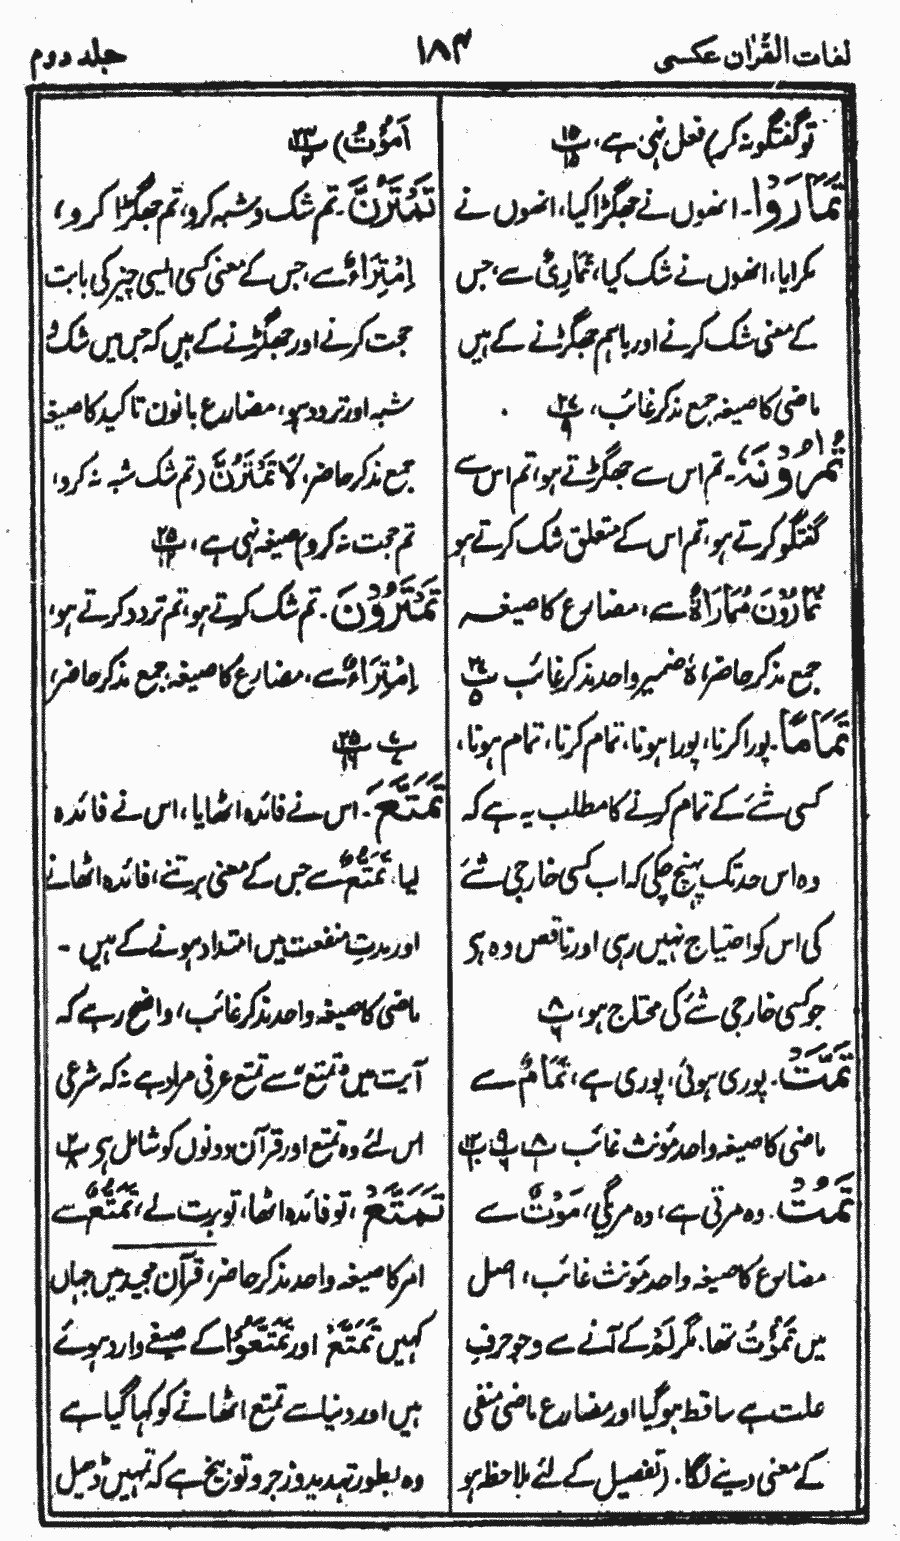 لغات القرآن عکسی
۱۸۴
جلد دوم
تو گفتگو نہ کر) فعل نہی ہے، پ۱۵ ۱۵
تَمَارَوْا۔ انھوں نے جھگڑا کیا، انھوں نے
مکرایا، انھوں نے شک کیا، تَمَارِیٌ سے، جس
کے معنی شک کرنے اور باہم جھگڑنے کے ہیں
ماضی کا صیغہ جمع مذکر غائب، پ۲۷ ۹
تُمٰرُوْنَہٗ۔ تم اس سے جھگڑتے ہو، تم اس سے
گفتگو کرتے ہو، تم اس کے متعلق شک کرتے ہو
تُمَارُوْنَ مُمَارَاۃٌ سے، مضارع کا صیغہ
جمع مذکر حاضر، ہٗ ضمیر واحد مذکر غائب پ۲۷ ۵
تَمَامًا۔ پورا کرنا، پورا ہونا، تمام کرنا، تمام ہونا،
کسی شے کے تمام کرنے کا مطلب یہ ہے کہ
وہ اس حد تک پہنچ چکی کہ اب کسی خارجی شے
کی اس کو احتیاج نہیں رہی اور ناقص وہ ہی
جو کسی خارجی شے کی محتاج ہو، پ۸ ۶
تَمَّتْ۔ پوری ہوئی، پوری ہے، تَمَامٌ سے
ماضی کا صیغہ واحد مؤنث غائب پ۸ ۱ پ۹ ۶ پ۱۲ ۱۰
تَمُتْ۔ وہ مرتی ہے، وہ مرگی، مَوْتٌ سے
مضارع کا صیغہ واحد مؤنث غائب، اصل
میں تَمُوْتُ تھا۔ مگر لَمْ کے آنے سے وجو حرفِ
علت ہے ساقط ہوگیا اور مضارع ماضی منفی
کے معنی دینے لگا۔ (تفصیل کے لئے ملاحظہ ہو
اَمُوْتُ) پ۲۳ ۲
تَمْتَرُنَّ۔ تم شک و شبہ کرو، تم جھگڑا کرو،
اِمْتِرَاءٌ سے، جس کے معنی کسی ایسی چیز کی بابت
حجت کرنے اور جھگڑنے کے ہیں کہ جس میں شک و
شبہ اور تردد ہو، مضارع بانون تاکید کا صیغہ
جمع مذکر حاضر، لَا تَمْتَرُنَّ (تم شک شبہ نہ کرو،
تم حجت نہ کرو) صیغہ نہی ہے، پ۲۵ ۱۲
تَمْتَرُوْنَ۔ تم شک کرتے ہو، تم تردد کرتے ہو،
اِمْتِرَاءٌ سے، مضارع کا صیغہ جمع مذکر حاضر،
پ۷ ۷ پ۲۵ ۱۶
تَمَتَّعَ۔ اس نے فائدہ اٹھایا، اس نے فائدہ
لیا۔ تَمَتُّعٌ سے جس کے معنی برتنے، فائدہ اٹھانے
اور مدتِ منفعت میں امتداد ہونے کے ہیں۔
ماضی کا صیغہ واحد مذکر غائب، واضح رہے کہ
آیت میں "تمتع" سے تمتع عرفی مراد ہے نہ کہ شرعی
اس لئے وہ تمتع اور قرآن دونوں کو شامل ہی پ۲ ۸
تَمَتَّعْ، تو فائدہ اٹھا، تو برت لے، تَمَتُّعٌ سے
امر کا صیغہ واحد مذکر حاضر، قرآن مجید میں جہاں
کہیں تَمَتَّعْ اور تَمَتَّعُوْا کے صیغے وارد ہوئے
ہیں اور دنیا سے تمتع اٹھانے کو کہا گیا ہے
وہ بطور تہدید و زجر و توبیخ ہے کہ تمہیں ڈھیل